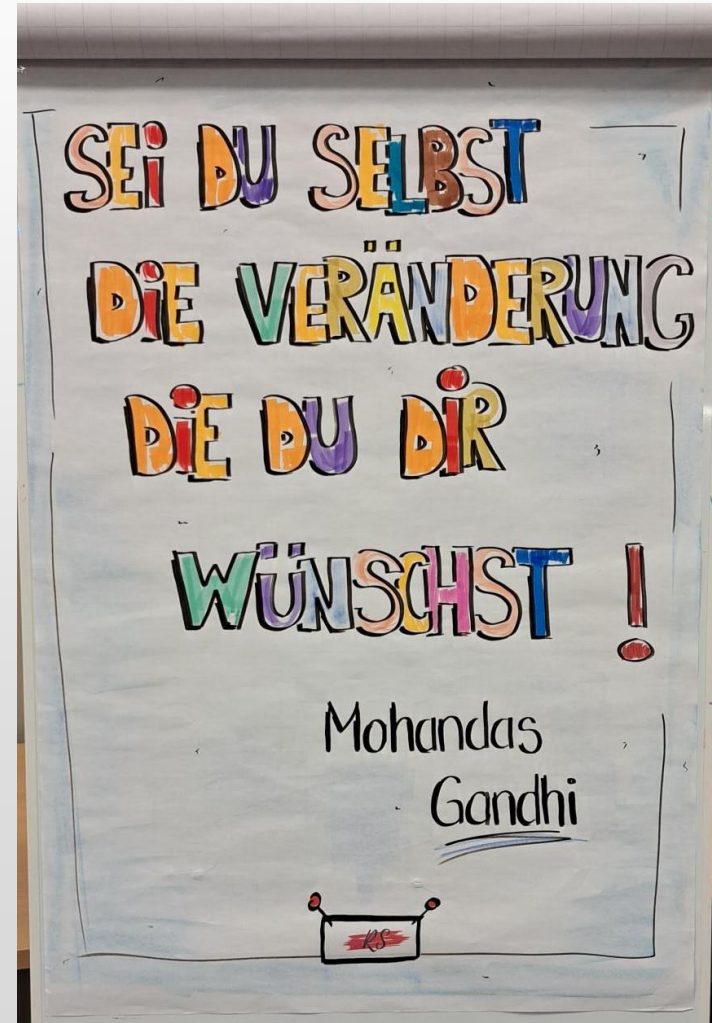 SEi DU SELBST
DiE VERÄNDERUNG
DiE DU DiR
WÜNSCHST !
Mohandas
Gandhi
RS